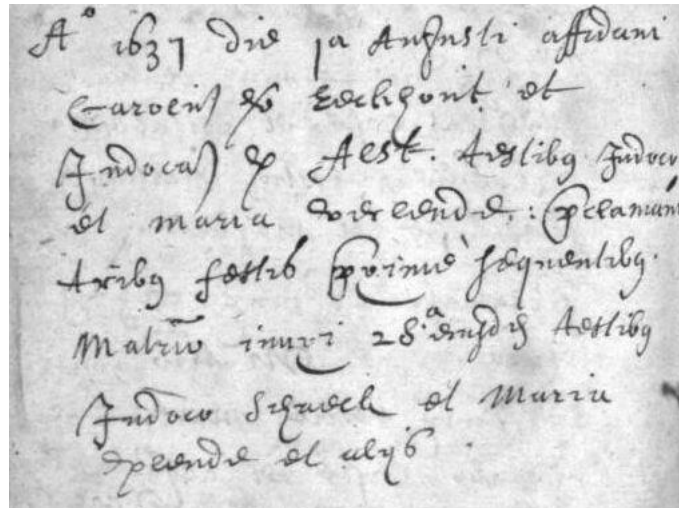 Aº 1637 die 1a Augusti affidavi
Carolus de Eeckhout et
Judoca de Aelst. testibus Judoco
et maria verlende: pclamāt
tribus festis proxime sequentibus
Matrīo iunxi 28.a eiusdē testibus
Judoco Schaeck et Maria
et alijs